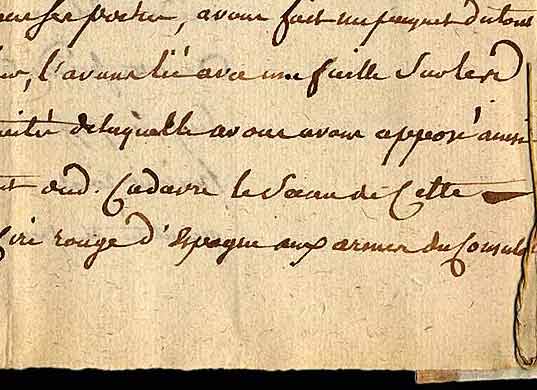 ses poches, avons fait un paquet du tout
l'avons lié avec une ficelle Sur les
de laquelle avons avons apposé ainsi
aud. Cadavre le Sceau de Cette
Cire rouge d'Espagne aux armes du Consulat